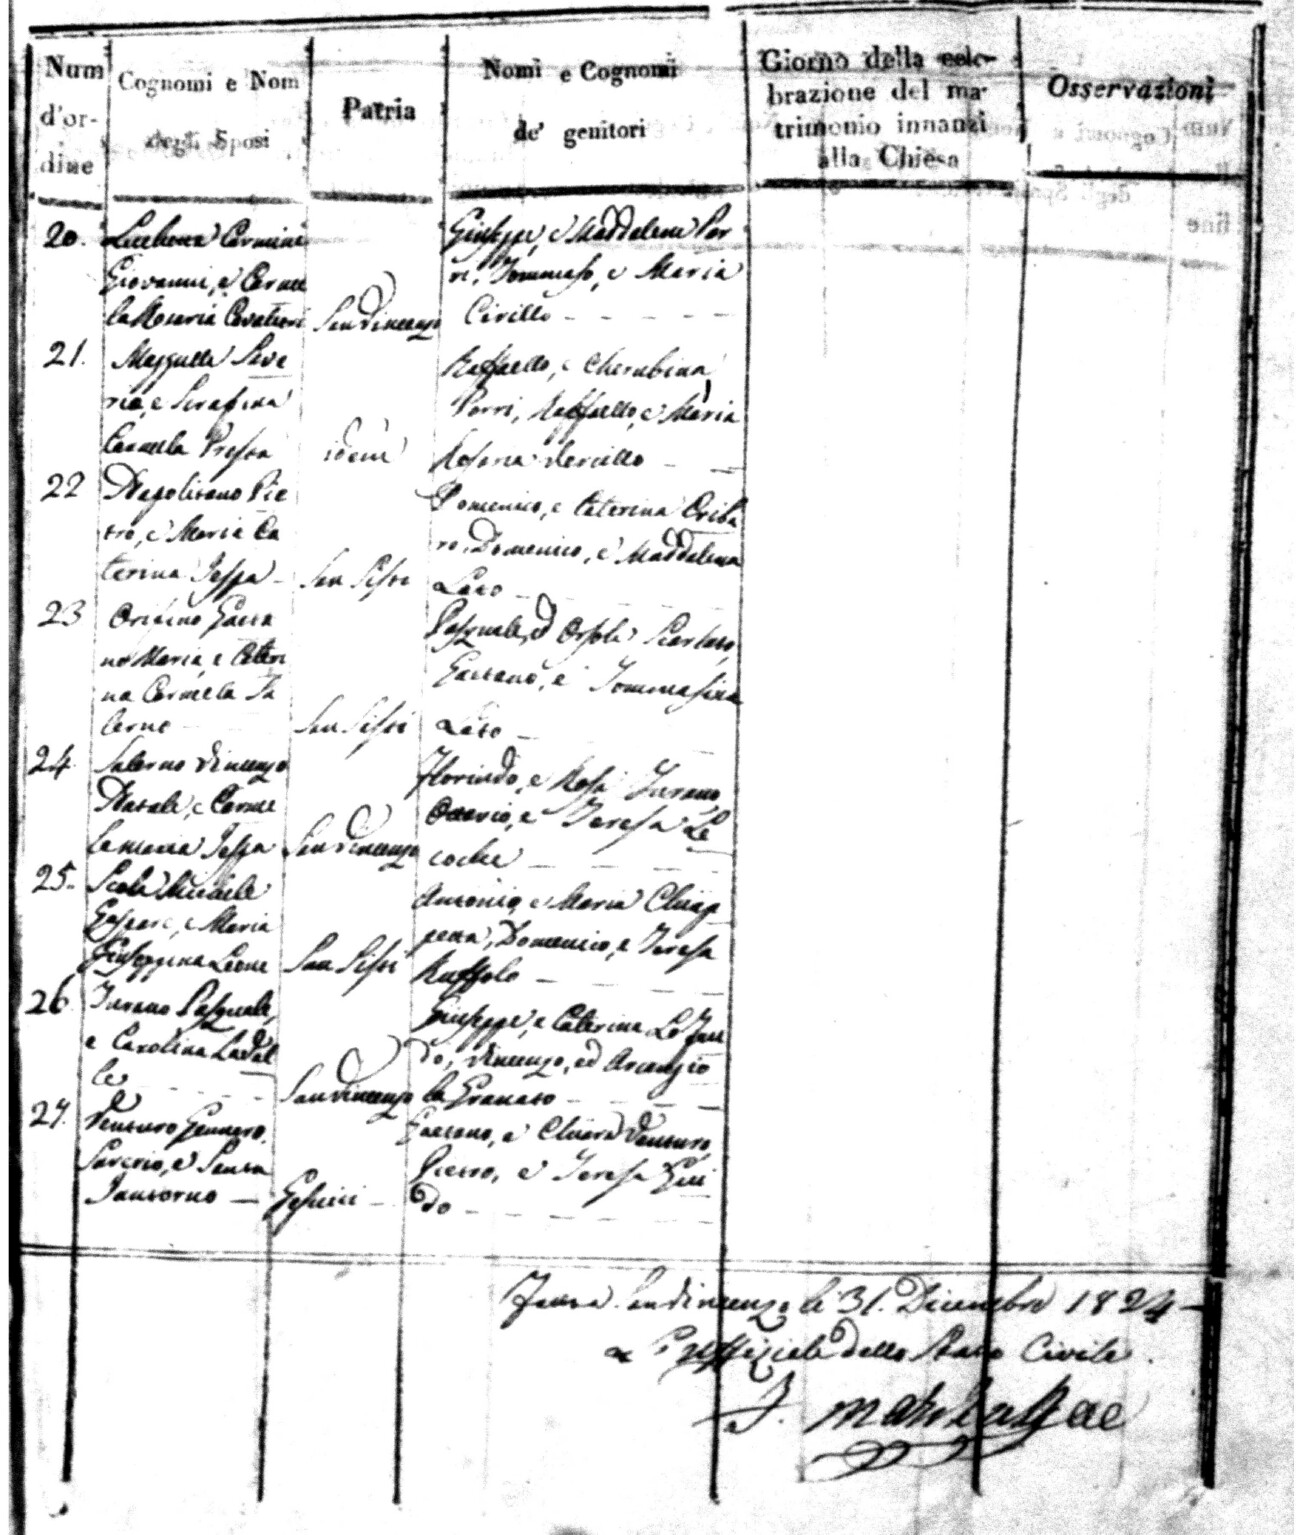 Num d'or- dine
Cognomi e Nom degli Sposi
Patria
Nomi e Cognomi de' genitori
Giorno della cele- brazione del ma- trimonio innanzi alla Chiesa
Osservazioni
20. Carmine
Giovanni, e Carme
la Rosaria Cavalieri
San Vincenzo
Giuseppe, e Maddalena Por
ri, Tommaso, e Maria
Cirillo
21. Mazzulla Save
rio, e Serafina
Carmela Presta
idem
Raffaello, e Cherubina
Porri, Raffaello, e Maria
Rosaria Vercillo
22 Napolitano Pie
tro, e Maria Ca
terina Jessa
San Sisti
Domenico, e Caterina Criba
ro, Domenico, e Maddalena
Lato
23 Orifino Gaeta
no Maria, e Cateri
na Carmela Sa
lerno
San Sisti
Pasquale, ed Orsola
Gaetano, e Tommasina
Lato
24. Salerno Vincenzo
Natale, e Carme
la Maria Jessa
San Vincenzo
Florindo, e Rosa Turano
Ottavio, e Teresa Le
coche
25. Scola Michele
Gaspare, e Maria
Giuseppina Leone
San Sisti
Antonio, e Maria Chiap
petta, Domenico, e Teresa
Ruffolo
26. Turano Pasquale,
e Carolina La Val
le
San Vincenzo
Giuseppe, e Caterina Lo Feu
do, Vincenzo, ed Arcangio
la Granato
27. Venturo Gennaro
Saverio, e Santa
Santorno
Gesuiti
Gaetano, e Chiara Venturo,
Pietro, e Teresa Gui
do
San Vincenzo li 31. Dicembre 1824
L'Uffiziale dello Stato Civile.